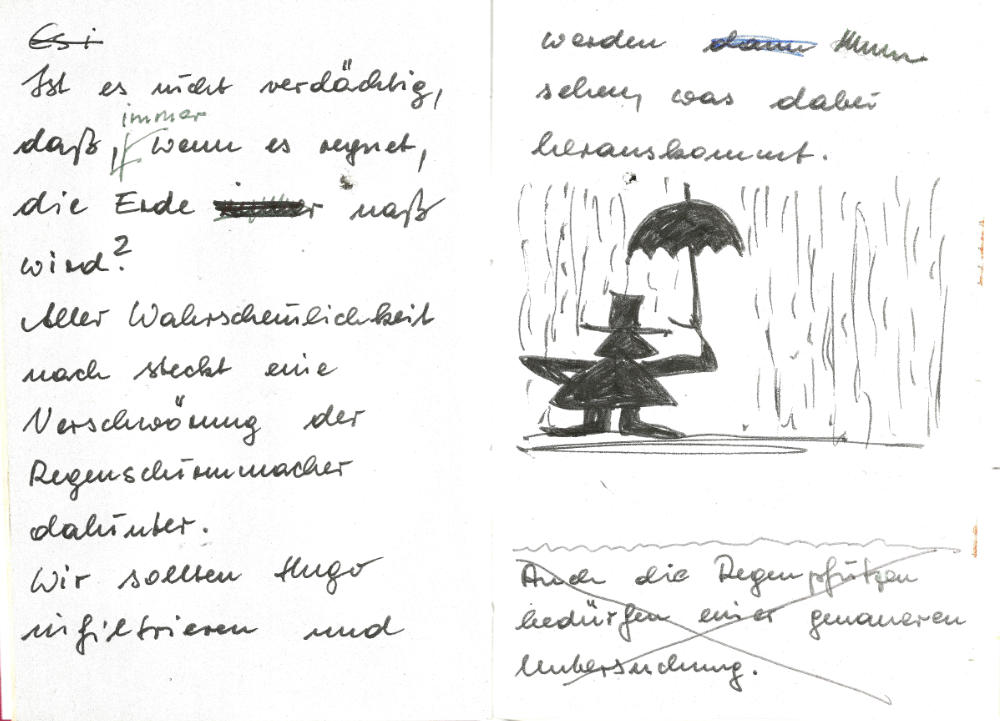 Es i
Ist es nicht verdächtig,
immer
daß, wenn es regnet,
die Erde immer naß
wird?
Aller Wahrscheinlichkeit
nach steckt eine
Verschwörung der
Regenschirmmacher
dahinter.
Wir sollten Hugo
infiltrieren und
werden dann
sehen, was dabei
herauskommt.
Auch die Regenpfützen
bedürfen einer genaueren
Untersuchung.